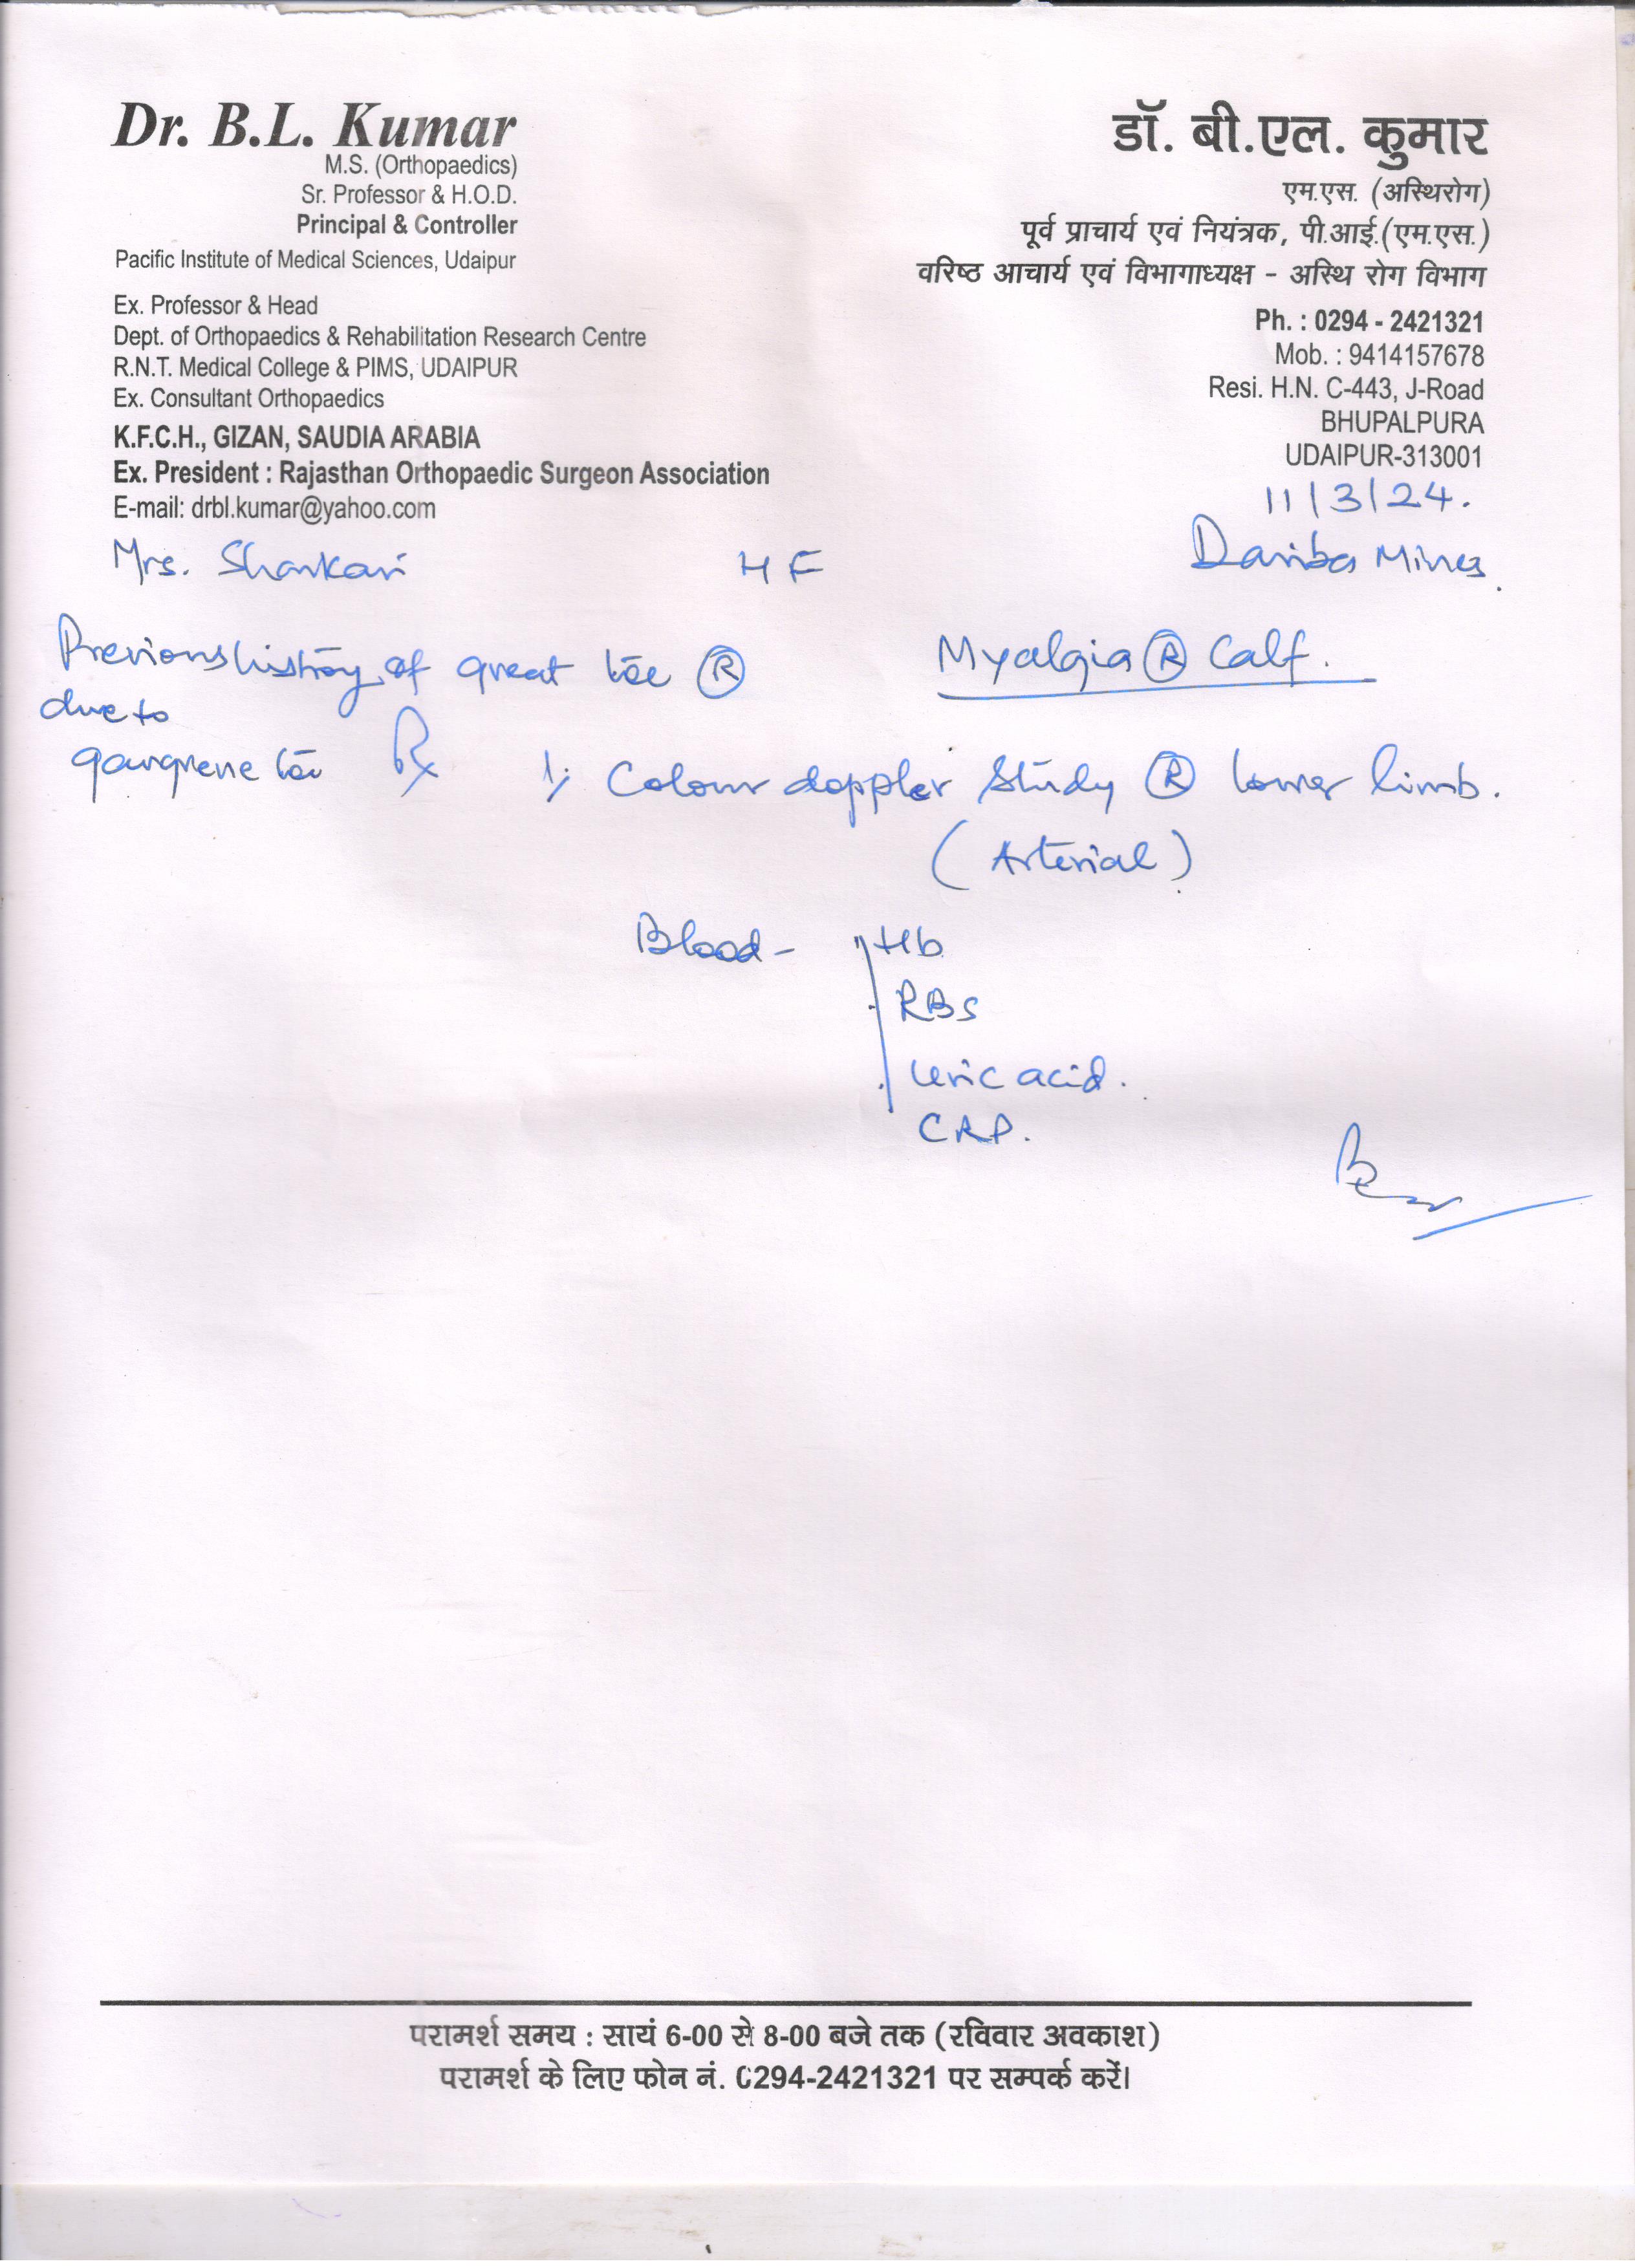 Dr. B.L. Kumar
M.S. (Orthopaedics)
Sr. Professor & H.O.D.
Principal & Controller
Pacific Institute of Medical Sciences, Udaipur
Ex. Professor & Head
Dept. of Orthopaedics & Rehabilitation Research Centre
R.N.T. Medical College & PIMS, UDAIPUR
Ex. Consultant Orthopaedics
K.F.C.H., GIZAN, SAUDIA ARABIA
Ex. President : Rajasthan Orthopaedic Surgeon Association
E-mail: drbl.kumar@yahoo.com
डॉ. बी.एल. कुमार
एम.एस. (अस्थिरोग)
पूर्व प्राचार्य एवं नियंत्रक, पी.आई.(एम.एस.)
वरिष्ठ आचार्य एवं विभागाध्यक्ष - अस्थि रोग विभाग
Ph. : 0294 - 2421321
Mob. : 9414157678
Resi. H.N. C-443, J-Road
BHUPALPURA
UDAIPUR-313001
11/3/24.
Mrs. Shankari HF Dariba Mines.
Previous history of great toe Ⓡ
due to
gangrene toe
Myalgia Ⓡ Calf.
Rx 1) Colour doppler study Ⓡ lower limb.
(Arterial)
Blood - Hb
RBS
Uric acid.
CRP.
परामर्श समय : सायं 6-00 से 8-00 बजे तक (रविवार अवकाश)
परामर्श के लिए फोन नं. 0294-2421321 पर सम्पर्क करें।